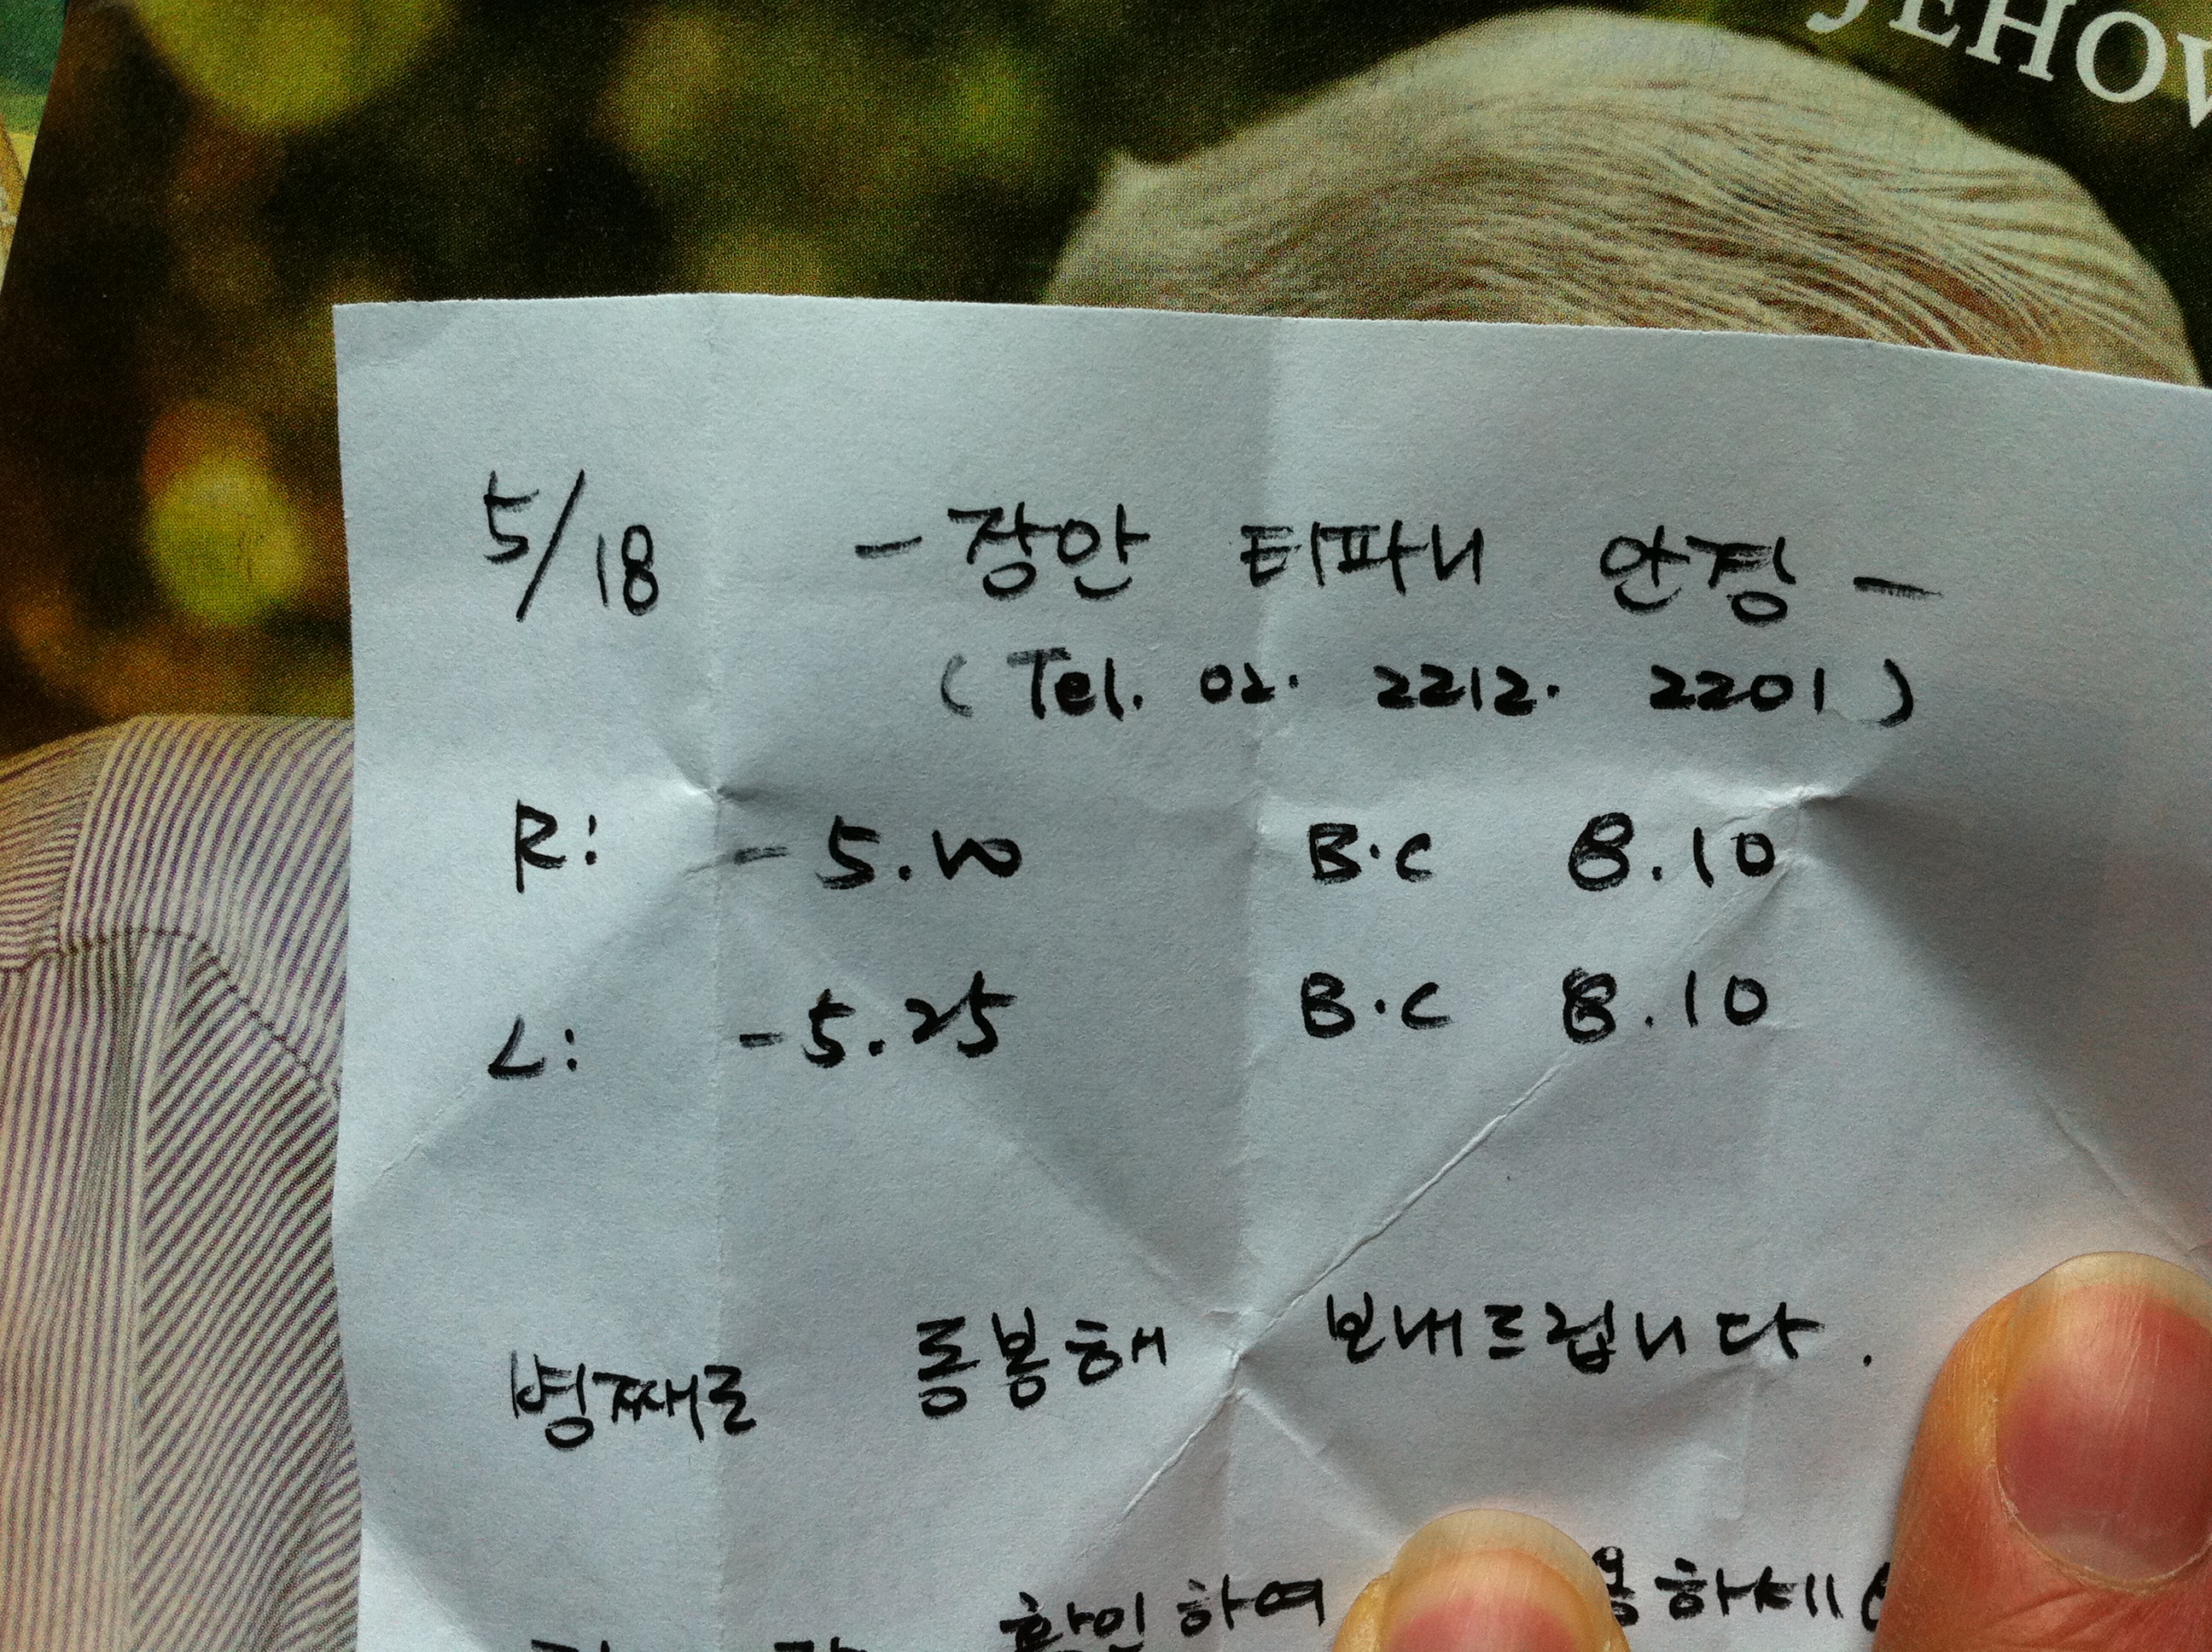 JEHOV
5/18 - 장안 티파니 안경 -
(Tel. 02. 2212. 2201)
R: - 5.00 B.C 8.10
L: - 5.25 B.C 8.10
병째로 동봉해 보내드립니다.
확인하여 용하세